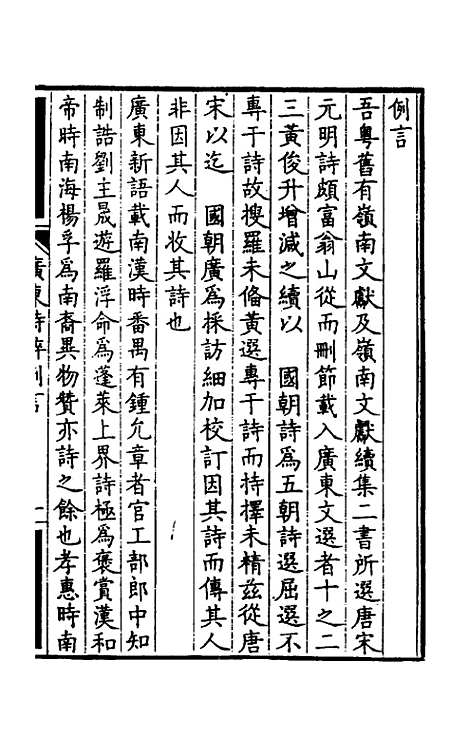 例言
吾粤舊有嶺南文獻及嶺南文獻續集二書所選唐宋
元明詩頗富翁山從而刪節載入廣東文選者十之二
三黃俊升增減之續以　國朝詩爲五朝詩選屈選不
專于詩故搜羅未偹黃選專于詩而持擇未精兹從唐
宋以迄　國朝廣爲採訪細加校訂因其詩而傳其人
非因其人而收其詩也
廣東新語載南漢時番禺有鍾允章者官工部郎中知
制誥劉主晟遊羅浮命爲蓬萊上界詩極爲褒賞漢和
帝時南海楊孚爲南裔異物贊亦詩之餘也孝惠時南
廣東詩粹例言　一